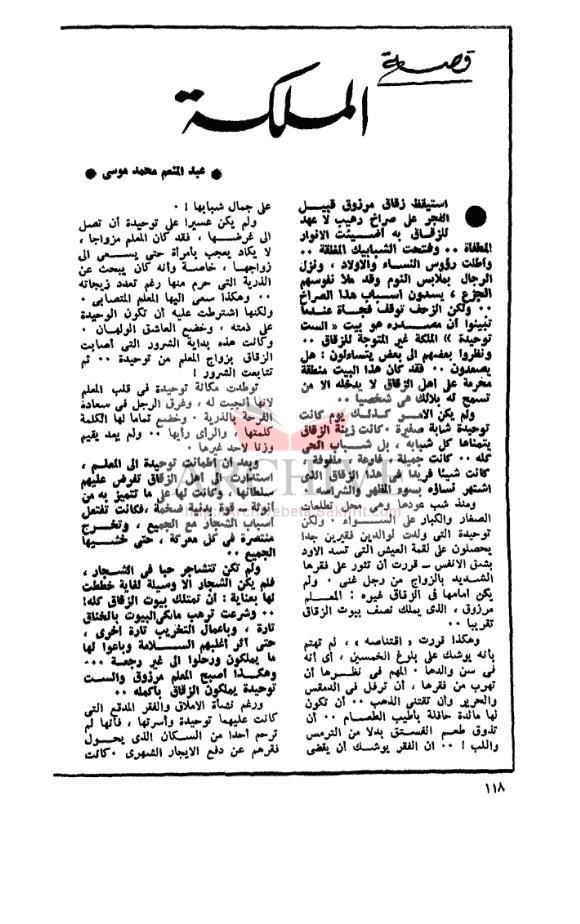 قصة
الملكة
● عبد المنعم محمد موسى ●
● استيقظ زقاق مرزوق قبيل
الفجر على صراخ رهيب لا عهد
للزقاق به أضيئت الانوار
المطفأة ٠٠ وفتحت الشبابيك المغلقة ٠٠
وأطلت رؤوس النساء والاولاد ، ونزل
الرجال بملابس النوم وقد ملأ نفوسهم
الجزع ، يسدون أسباب هذا الصراخ
٠٠ ولكن الزحف توقف فجأة عندما
تبينوا أن مصدره هو بيت « الست
توحيدة » الملكة غير المتوجة للزقاق ٠٠
ونظروا بعضهم الى بعض يتساءلون : هل
يصعدون ٠٠ فقد كان هذا البيت منطقة
محرمة على أهل الزقاق لا يدخله الا من
تسمح له بذلك هى شخصيا ٠٠
ولم يكن الامر كذلك يوم كانت
توحيدة شابة صغيرة ٠ كانت زينة الزقاق
يتمناها كل شبابه ، بل شباب الحى
كله ٠٠ كانت جميلة ، فارعة ، ملفوفة ٠
كانت شيئا فريدا فى هذا الزقاق الذى
اشتهر نساؤه بسوء المظهر والشراسة ٠
ومنذ شب عودها وهى محل تطلعات
الصغار والكبار على السواء ٠ ولكن
توحيدة التى ولدت لوالدين فقيرين جدا
يحصلون على لقمة العيش التى تسد الاود
بشق الانفس ـ قررت أن تثور على فقرها
الشديد بالزواج من رجل غنى ٠ ولم
يكن أمامها فى الزقاق غيره : المعلم
مرزوق ، الذى يملك نصف بيوت الزقاق
تقريبا ٠٠
وهكذا قررت « اقتناصه » ، لم تهتم
بأنه يوشك على بلوغ الخمسين ، أى أنه
فى سن والدها ٠ المهم فى نظرها أن
تهرب من فقرها ، أن ترفل فى الدمقس
والحرير وأن تقتنى الذهب ٠٠ أن تكون
لها مائدة حافلة بأطيب الطعام ٠٠ أن
تذوق طعم الفستق بدلا من الترمس
واللب ! ٠٠ ان الفقر يوشك أن يقضى
على جمال شبابها ! ٠
ولم يكن عسيرا على توحيدة أن تصل
الى غرضها ، فقد كان المعلم مزواجا ،
لا يكاد يعجب بامرأة حتى يسعى الى
زواجها ، خاصة وأنه كان يبحث عن
الذرية التى حرم منها رغم تعدد زيجاته
٠٠ وهكذا سعى اليها المعلم المتصابى ٠
ولكنها اشترطت عليه أن تكون الوحيدة
على ذمته ، وخضع العاشق الولهان ٠
وكانت هذه بداية الشرور التى أصابت
الزقاق بزواج المعلم من توحيدة ٠٠ ثم
تتابعت الشرور !
توطدت مكانة توحيدة فى قلب المعلم
لانها أنجبت له ، وغرق الرجل فى سعادة
الفرحة بالذرية ٠ وخضع تماما لها الكلمة
كلمتها ، والرأى رأيها ٠٠ ولم يعد يقيم
وزنا لاحد غيرها ٠
وبعد أن اطمأنت توحيدة الى المعلم ،
استدارت الى أهل الزقاق تفرض عليهم
سلطانها ، وكانت لها على ما تتميز به من
أنوثة ـ قوة بدنية ضخمة ، فكانت تفتعل
أسباب الشجار مع الجميع ، وتخرج
منتصرة فى كل معركة ، حتى خشيها
الجميع ٠٠
ولم تكن تتشاجر حبا فى الشجار ،
فلم يكن الشجار الا وسيلة لغاية خططت
لها بعناية : أن تمتلك بيوت الزقاق كله !
٠٠ وشرعت ترهب مالكى البيوت بالخناق
تارة ، وبأعمال التخريب تارة أخرى ،
حتى آثر أغلبهم السلامة وباعوا لها
ما يملكون ورحلوا الى غير رجعة ٠٠٠
وهكذا أصبح المعلم مرزوق والست
توحيدة يملكون الزقاق بأكمله ٠٠
ورغم نشأة الاملاق والفقر المدقع التى
كانت عليهما توحيدة وأسرتها ، فأنها لم
ترحم أحدا من السكان الذى يحول
فقرهم عن دفع الايجار الشهرى ٠ كانت
ARCHIVE
١١٨